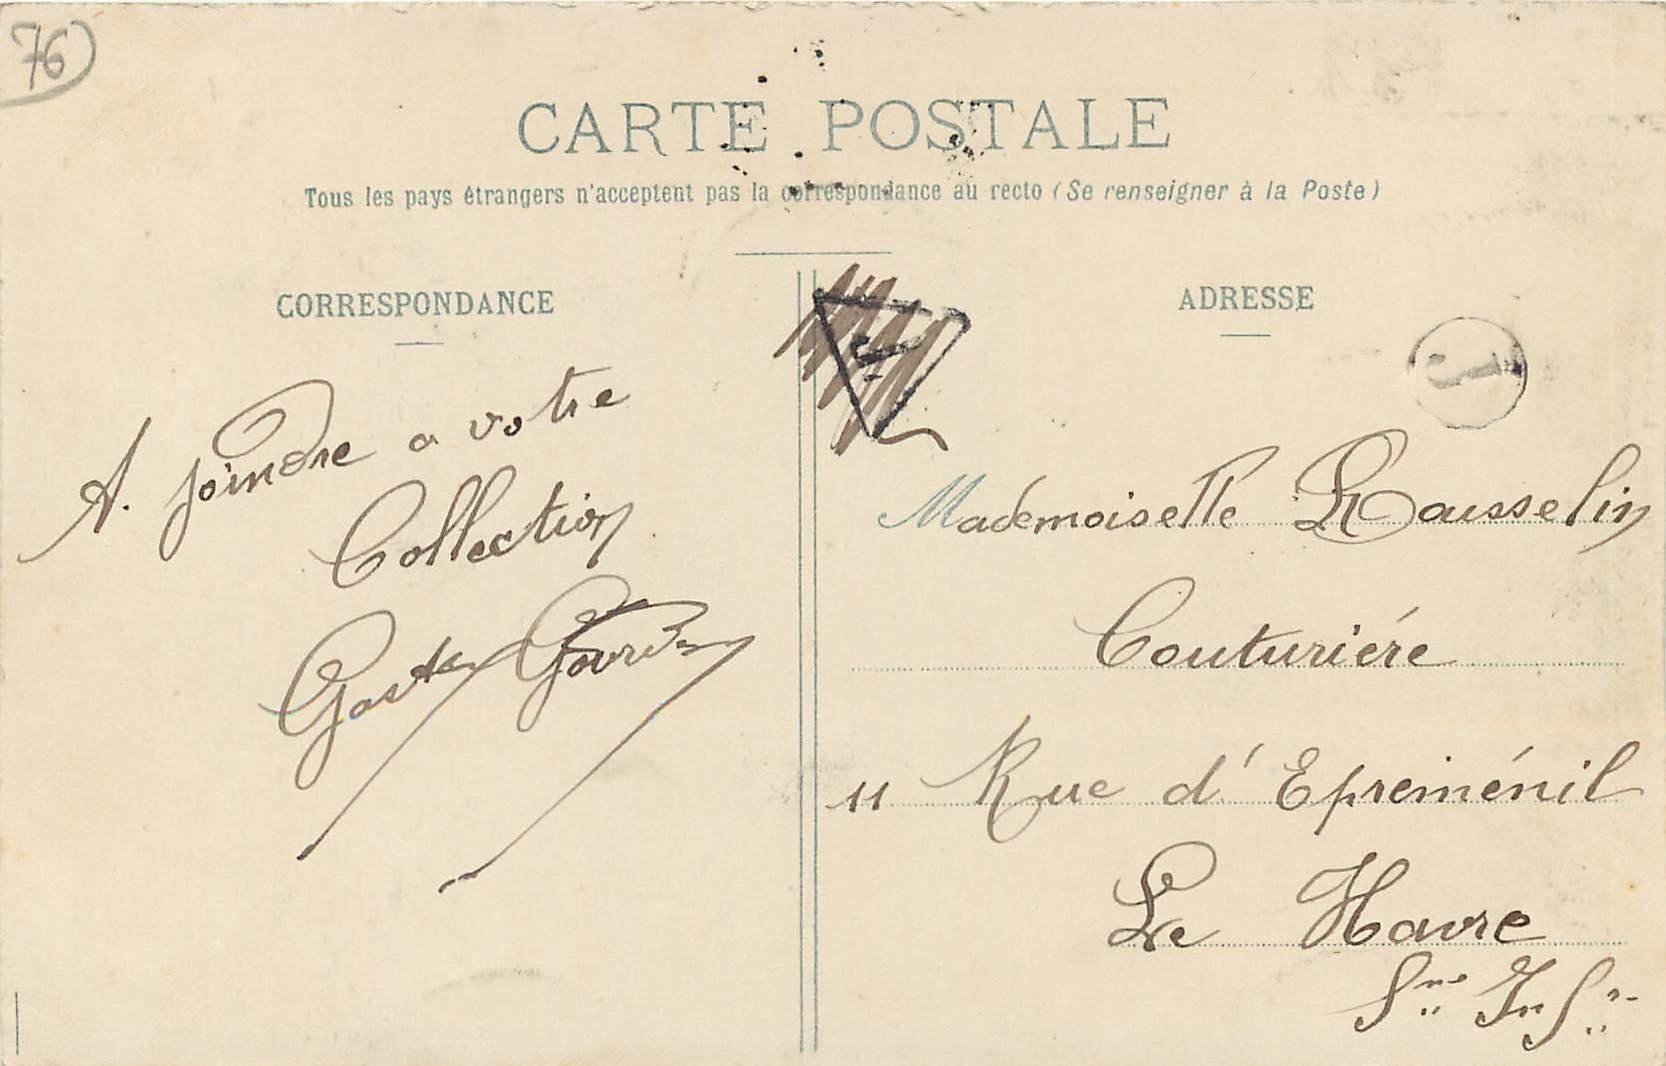 76
CARTE POSTALE
Tous les pays étrangers n'acceptent pas la correspondance au recto (Se renseigner à la Poste)
CORRESPONDANCE
A. joindre a votre
Collection
ADRESSE
Mademoiselle Rousselin
Couturiére
11 Rue d'Epreménil
Le Havre
Sne Infre